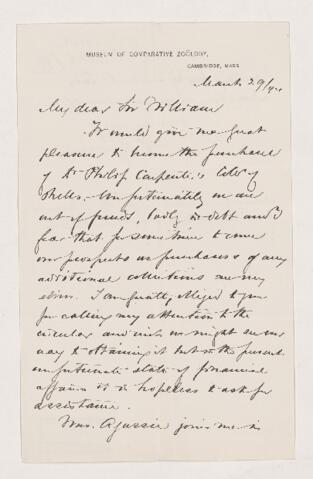 MUSEUM OF COMPARATIVE ZOÖLOGY,
CAMBRIDGE, MASS
March 29/
My dear Sir William
It would give me great
pleasure to become the purchaser
of Dr Philip Carpenter's coll'n of
shells - Unfortunately we are
out of funds, badly in debt and I
fear that for some time to come
our prospects as purchasers of any
additional collections are very
slim. I am greatly obliged to you
for calling my attention to the
circular and wish we might see our
way to obtaining it but in the present
unfortunate state of financial
affairs it is hopeless to ask for
assistance.
Mrs. Agassiz joins me in